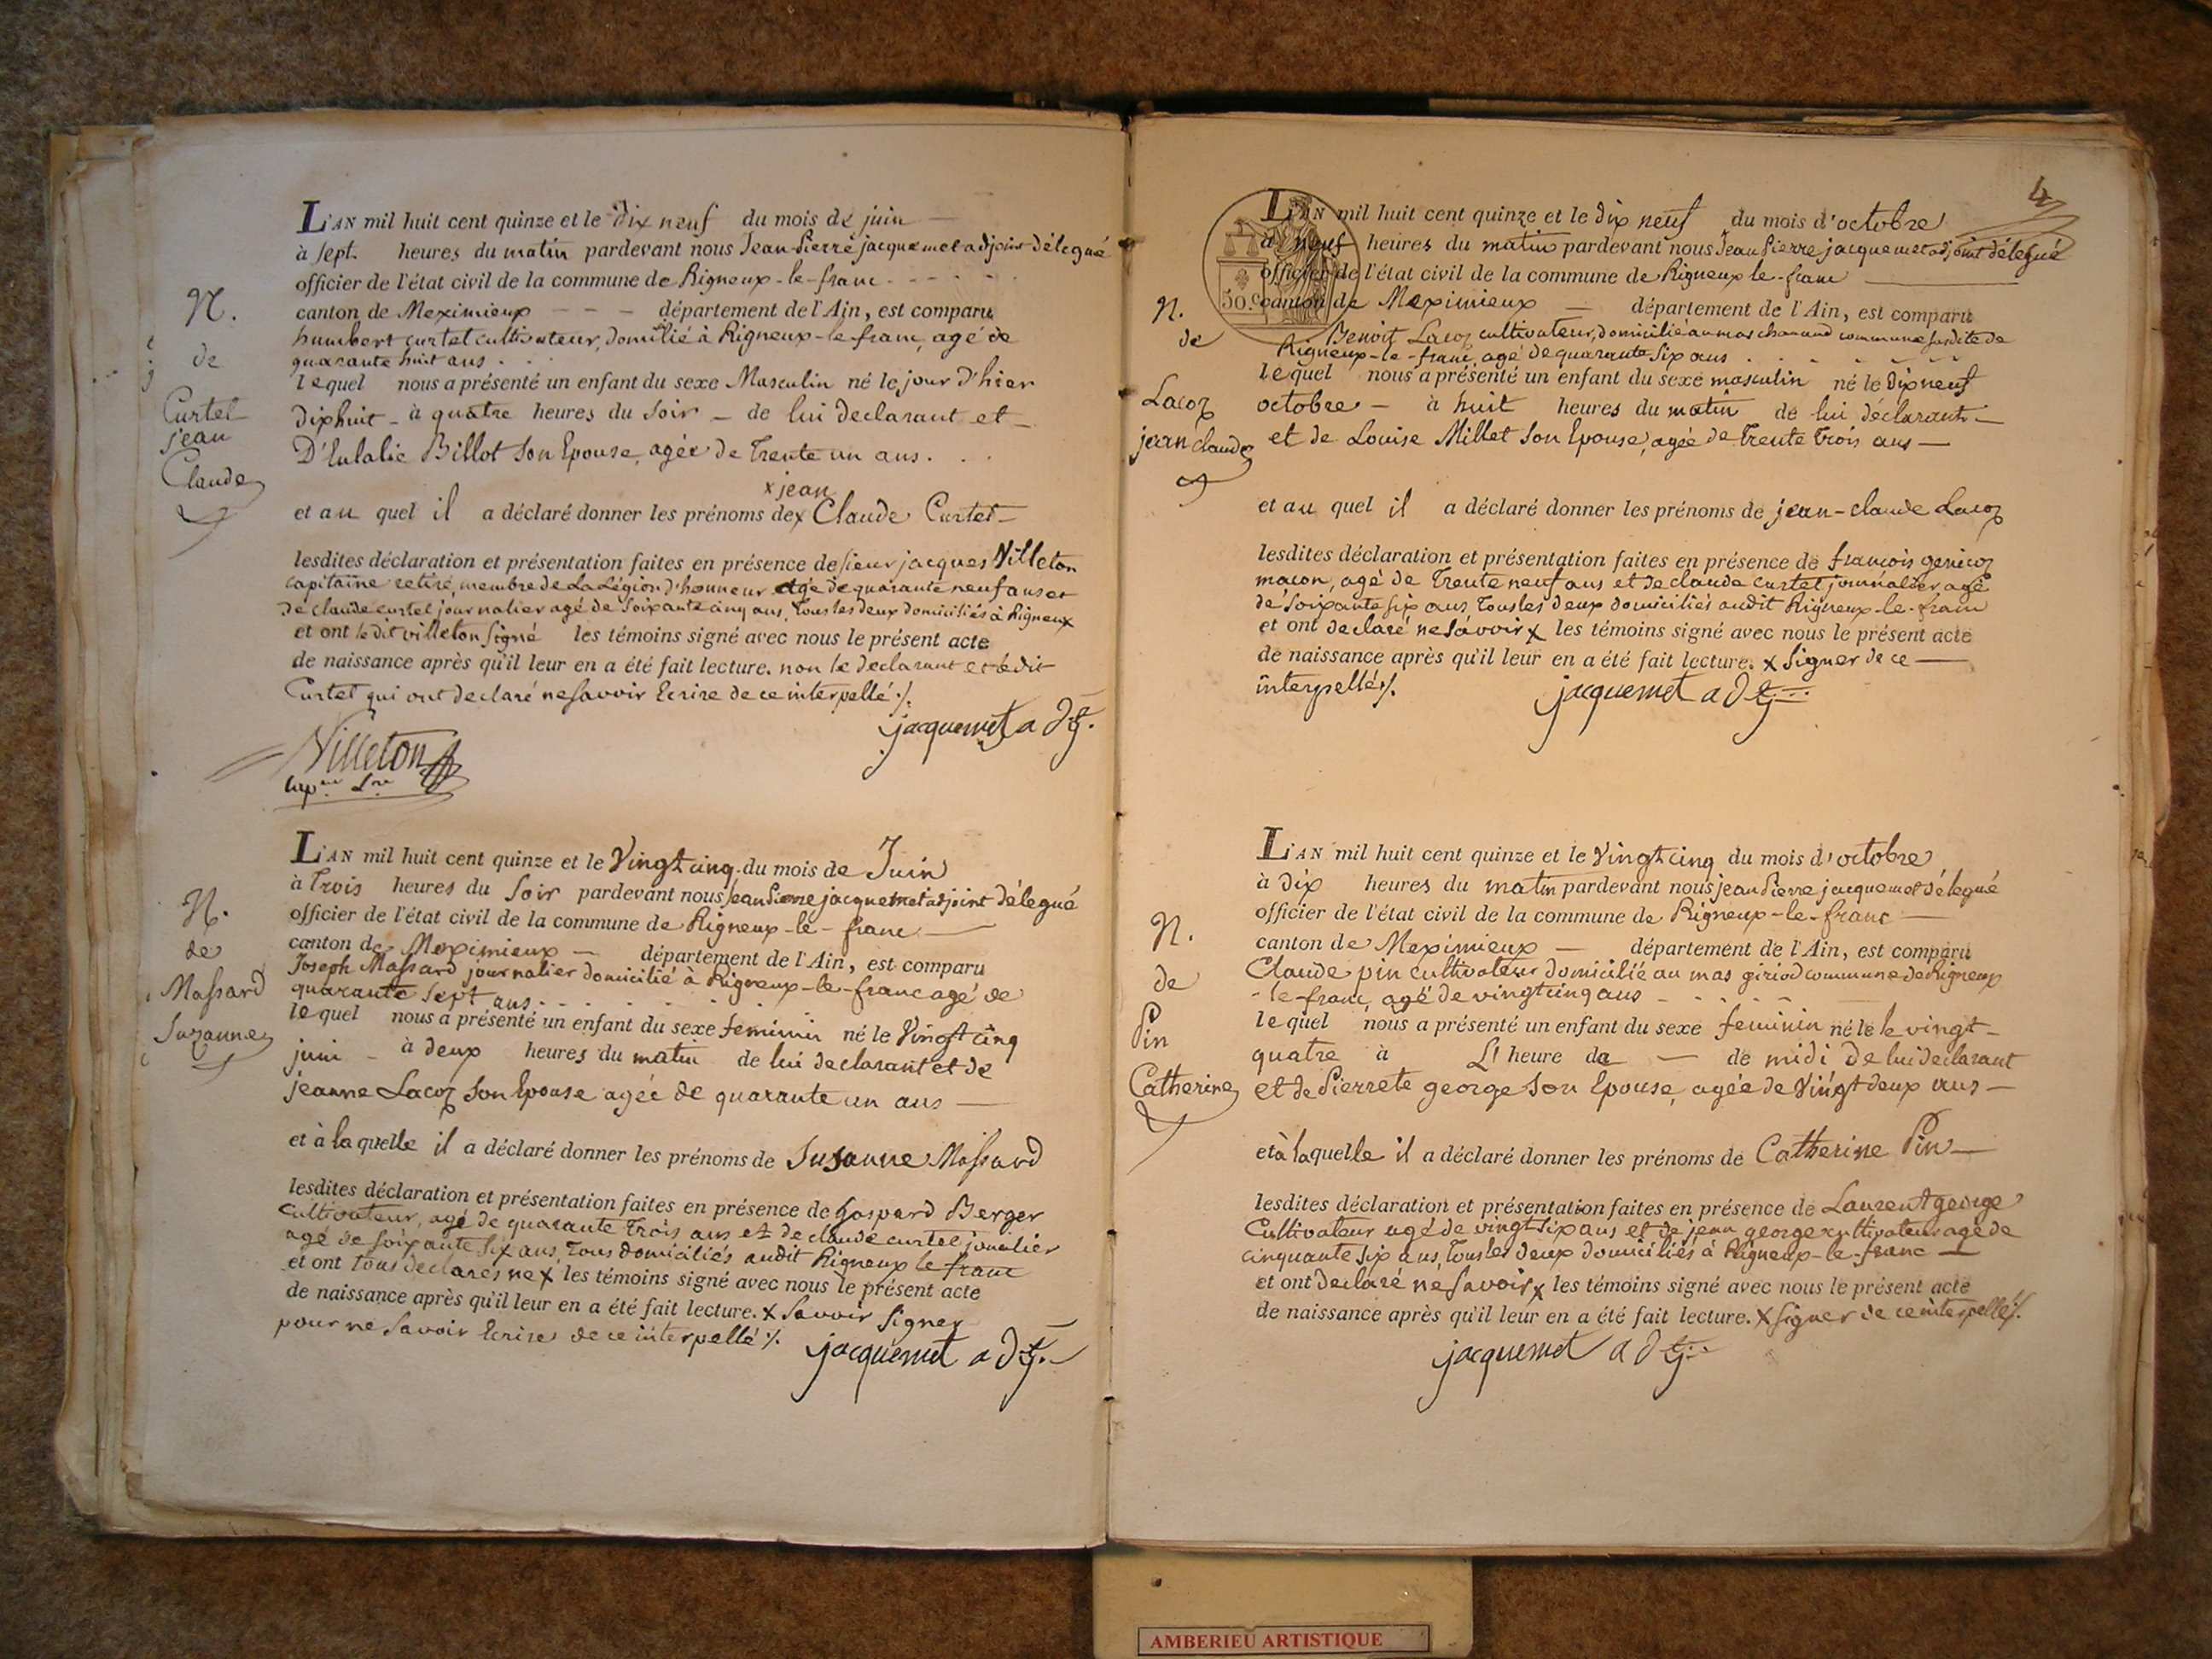 L'AN mil huit cent quinze et le dix neuf du mois de juin
à sept heures du matin pardevant nous Jean Pierre jacquemet adjoint délegué
officier de l'état civil de la commune de Rigneux-le-franc
canton de Meximieux département de l'Ain, est comparu
humbert curtet cultivateur, domilié à Rigneux-le-franc, agé de
quarante huit ans
lequel nous a présenté un enfant du sexe Masculin né le jour d'hier
dixhuit à quatre heures du soir de lui declarant et
D'Eulalie Billot son Epouse, agée de trente un ans
x jean
et au quel il a déclaré donner les prénoms de x Claude Curtet
lesdites déclaration et présentation faites en présence de sieur jacques Villeton
capitaine retiré, membre de La Légion d'honneur agé de quarante neuf ans et
de claude curtet journalier agé de soixante cinq ans, tous les deux domiciliés à Rigneux
et ont ledit villeton signé les témoins signé avec nous le présent acte
de naissance après qu'il leur en a été fait lecture. non le declarant et ledit
Curtet qui ont declaré ne savoir Ecrire de ce interpellé ./.
jacquemet adj.
Villeton
N.
de
Curtet
jean
Claude
L'AN mil huit cent quinze et le Vingt cinq du mois de Juin
à Trois heures du soir pardevant nous Jean Pierre jacquemet adjoint délegué
officier de l'état civil de la commune de Rigneux-le-franc
canton de Meximieux département de l'Ain, est comparu
Joseph Massard journalier domicilié à Rigneux-le-franc agé de
quarante sept ans
lequel nous a présenté un enfant du sexe feminin né le Vingt cinq
juin à deux heures du matin de lui declarant et de
jeanne Lacoz son Epouse agée de quarante un ans
et à laquelle il a déclaré donner les prénoms de Susanne Massard
lesdites déclaration et présentation faites en présence de Gaspard Berger
cultivateur, agé de quarante trois ans et de claude curtet jounalier
agé de soixante six ans, tous domiciliés audit Rigneux le franc
et ont tous declarés ne x les témoins signé avec nous le présent acte
de naissance après qu'il leur en a été fait lecture. x savoir signer
pour ne savoir Ecrire de ce interpellé ./.
jacquemet adj.
N.
de
Massard
Suzanne
4
50 c
L'AN mil huit cent quinze et le dix neuf du mois d'octobre
à neuf heures du matin pardevant nous Jean Pierre jacquemet adjoint délegué
officier de l'état civil de la commune de Rigneux le-franc
canton de Meximieux département de l'Ain, est comparu
Benoit Lacoz cultivateur, domicilié au mas chanaud commune susdite de
Rigneux-le-franc, agé de quarante six ans
lequel nous a présenté un enfant du sexe masculin né le dix neuf
octobre à huit heures du matin de lui déclarant
et de Louise Millet son Epouse, agée de trente trois ans
et au quel il a déclaré donner les prénoms de jean-claude Lacoz
lesdites déclaration et présentation faites en présence de françois genicoz
macon, agé de trente neuf ans et de claude curtet journalier agé
de soixante six ans, tous les deux domiciliés audit Rigneux-le-franc
et ont declaré ne savoir x les témoins signé avec nous le présent acte
de naissance après qu'il leur en a été fait lecture. x signer de ce
interpellé ./.
jacquemet adj.
N.
de
Lacoz
jean Claude
L'AN mil huit cent quinze et le vingt cinq du mois d'octobre
à dix heures du matin pardevant nous jean Pierre jacquemet délegué
officier de l'état civil de la commune de Rigneux-le-franc
canton de Meximieux département de l'Ain, est comparu
Claude pin cultivateur domicilié au mas giriod commune de Rigneux
-le-franc, agé de vingt cinq ans
lequel nous a présenté un enfant du sexe feminin né le le vingt
quatre à L' heure de de midi de lui declarant
et de Pierrete george son Epouse, agée de vingt deux ans
et à laquelle il a déclaré donner les prénoms de Catherine Pin
lesdites déclaration et présentation faites en présence de Laurent george
Cultivateur agé de vingt six ans et de jean george cultivateur agé de
cinquante six ans, tous les deux domiciliés à Rigneux-le-franc
et ont declaré ne savoir x les témoins signé avec nous le présent acte
de naissance après qu'il leur en a été fait lecture. x signer de ce interpellé ./.
jacquemet adj.
N.
de
Pin
Catherine
AMBERIEU ARTISTIQUE